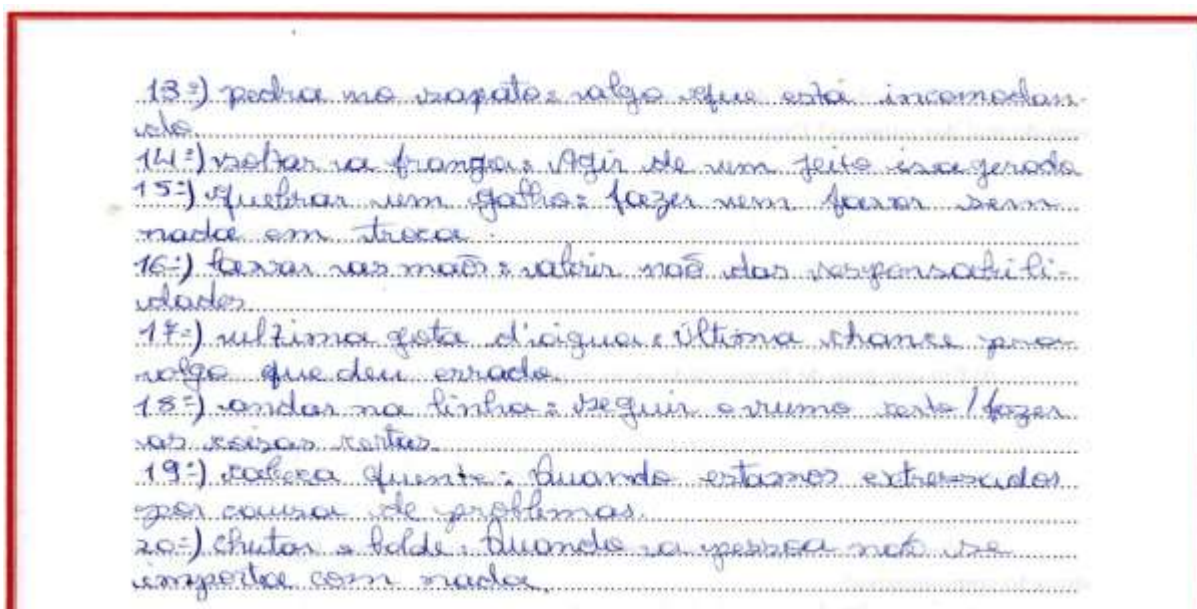 13-) pedra no sapato: algo que está incomodan-
do.
14-) soltar a franga: Agir de um jeito exagerado
15-) quebrar um galho: fazer um favor sem
nada em troca.
16-) lavar as maõs: abrir maõ das responsabili-
dades
17-) ultima gota d'água: última chance pra
algo que deu errado.
18-) andar na linha: seguir o rumo certo / fazer
as coisas certas.
19-) cabeça quente: Quando estamos extressados
por causa de problemas.
20-) chutar o balde: Quando a pessoa naõ se
importa com nada.